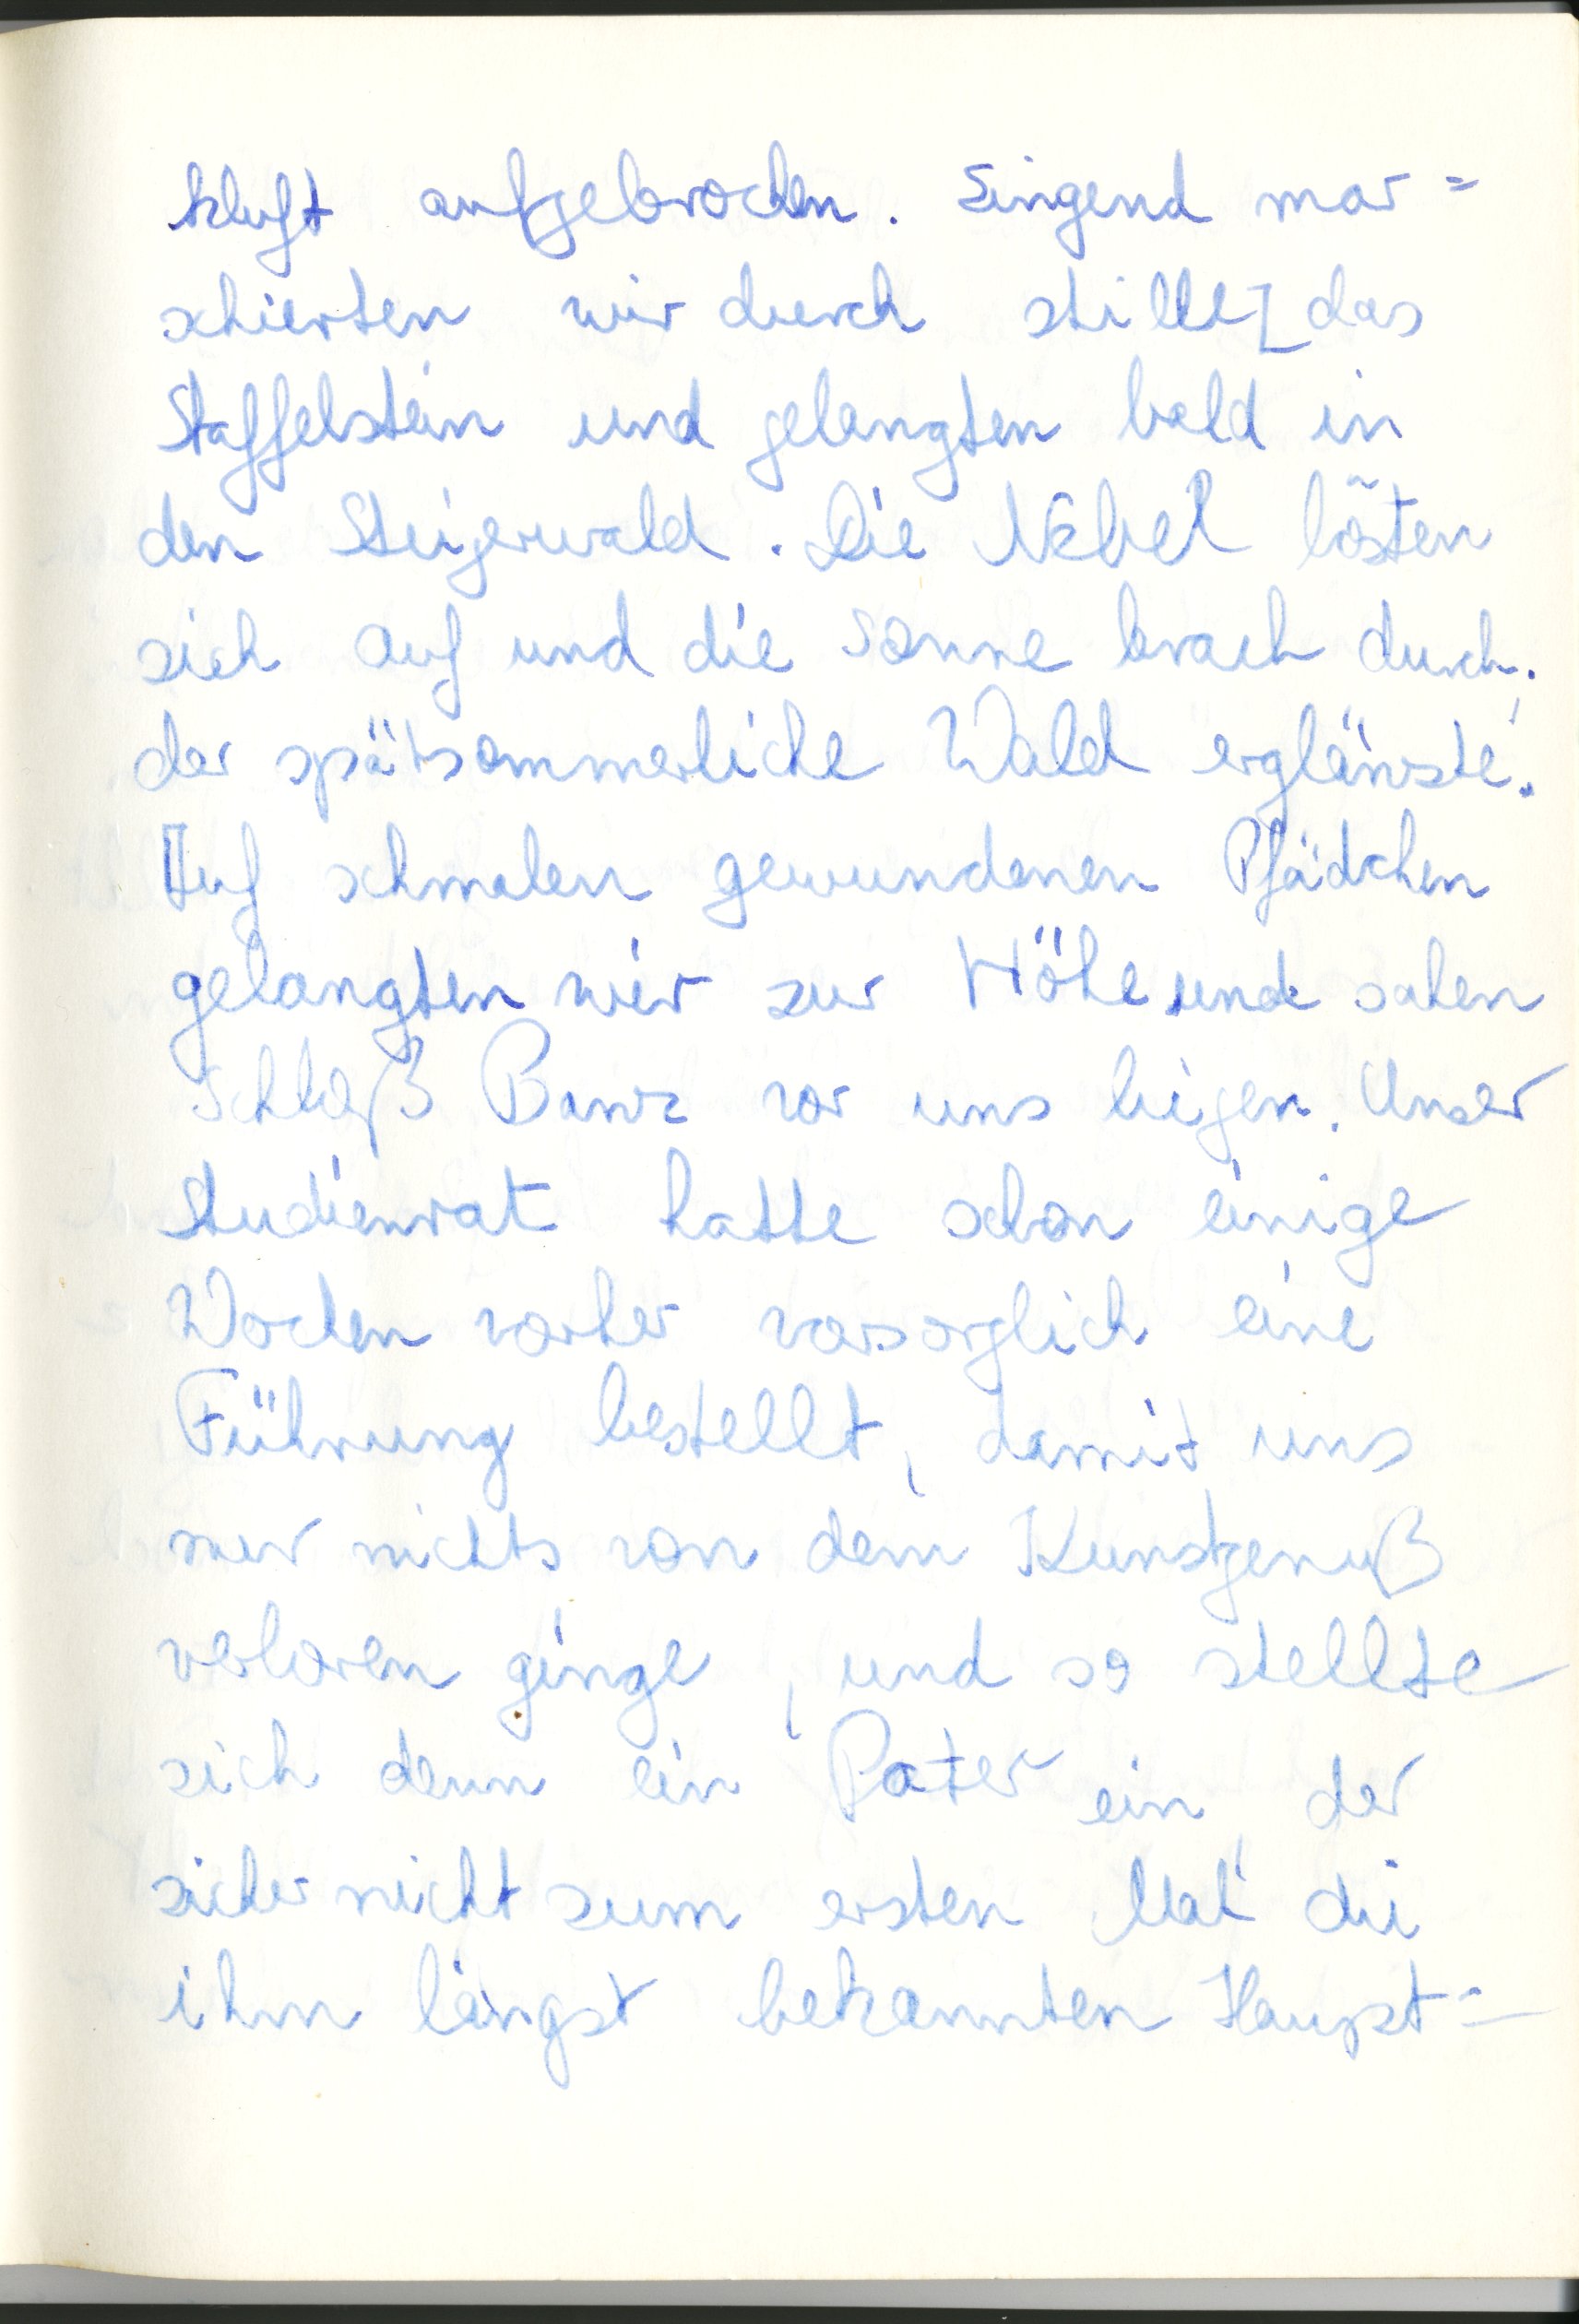 kluft aufgebrochen. Singend mar=
schierten wir durch stille[das
Staffelstein und gelangten bald in
den Steigerwald. Die Nebel lösten
sich auf und die Sonne brach durch;
der spätsommerliche Wald erglänzte.
Auf schmalen gewundenen Pfädchen
gelangten wir zur Höhe und sahen
Schloß Banz vor uns liegen. Unser
Studienrat hatte schon einige
Wochen vorher vorsorglich eine
Führung bestellt, damit uns
nur nichts von dem Kunstgenuß
verloren ginge, und so stellte
sich denn ein Pater ein, der
sicher nicht zum ersten Mal die
ihm längst bekannten Haupt=